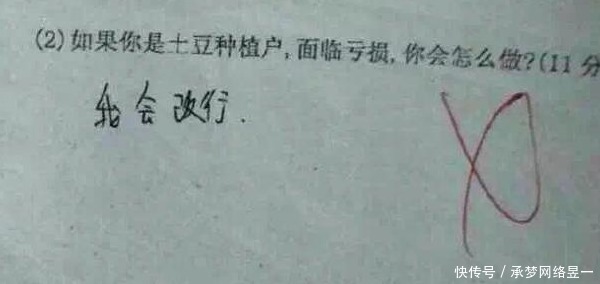 (2)如果你是土豆种植户,面临亏损,你会怎么做?(11分
我会改行.
快传号／承梦网络昱一